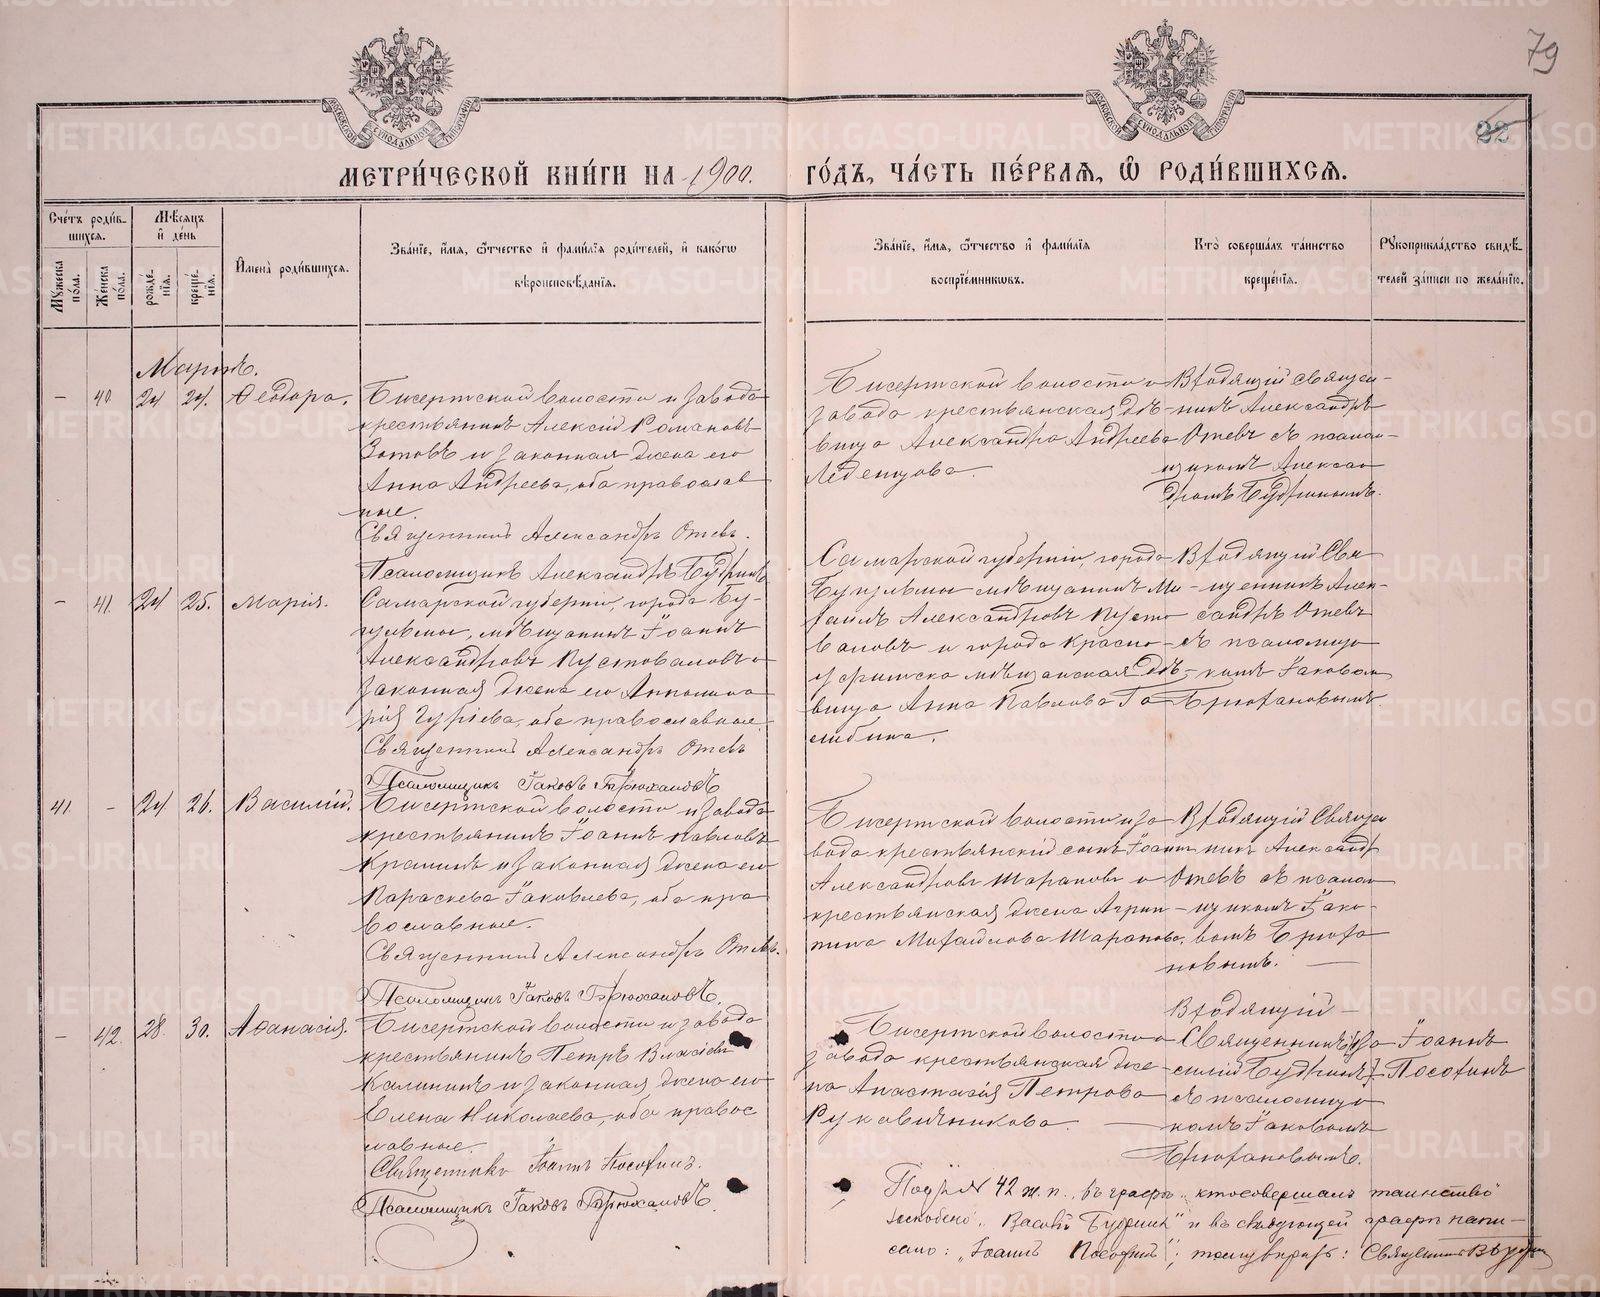 79
22
МЕТРИ́ЧЕСКОЙ КНИ́ГИ НА 1900. ГО́ДЪ, ЧА́СТЬ ПЕ́РВАѦ, Ѡ РОДИ́ВШИХСѦ.
Сче́тъ роди́в-
шихсѧ.
Мꙋ́жеска по́ла.
Же́нска по́ла.
Мѣ́сѧцъ
и҆ де́нь
рожде́-
нїѧ.
креще́-
нїѧ.
И҆мена̀ роди́вшихсѧ.
Зва́нїе, и҆́мѧ, ѻ҆́тчество и҆ фами́лїѧ роди́телей, и҆ како́гѡ
вѣроисповѣ́данїѧ.
Зва́нїе, и҆́мѧ, ѻ҆́тчество и҆ фами́лїѧ
воспрїе́мникѡвъ.
Кто̀ соверша́лъ та́инство
креще́нїѧ.
Рꙋкоприкла́дство свидѣ́-
телей за́писи по жела́нїю.
Мартъ.
– 40 24 24. Ѳеодора.
Бисертской волости и завода
крестьянинъ Алексій Романовъ
Зотовъ и законная жена его
Анна Андреева, оба православ
ные.
Священникъ Александръ Отевъ.
Псаломщикъ Александръ Будринъ
Бисертской волости и
завода крестьянская дѣ-
вица Александра Андреева
Леденцова.
Входящій священ-
никъ Александръ
Отевъ съ псалом-
щикомъ Алексан
дромъ Будринымъ.
– 41. 24 25. Марія.
Самарской губерніи, города Бу-
гульмы, мѣщанинъ Іоаннъ
Александровъ Пустоваловъ и
законная жена его Апполина
рія Гуріева, оба православные.
Священникъ Александръ Отевъ
Псаломщикъ Іаковъ Брюхановъ
Самарской губерніи, города
Бугульмы мѣщанинъ Ми-
хаилъ Александровъ Пусто
валовъ и города Красно-
уфимска мѣщанская дѣ-
вица Анна Павлова Го
Входящій Свя
щенникъ Алек-
сандръ Отевъ
съ псаломщи
комъ Іаковом
Брюхановымъ
41 – 24 26. Василій.
Бисертской волости и завода
крестьянинъ Іоаннъ Павловъ
и законная жена его
Параскева Іаковлева, оба пра
вославные.
Священникъ Александръ Отевъ.
Псаломщикъ Іаковъ Брюхановъ.
Бисертской волости и за
вода крестьянскій сынъ Іоанн
Александровъ Шараповъ и
крестьянская жена Агрип-
пина Михаилова Шарапова.
Входящій Священ
никъ Александр
Отевъ съ псалом
щикомъ Іако-
вомъ Брюха
новымъ.
– 42. 28. 30. Аѳанасія.
Бисертской волости и завода
крестьянинъ Петръ Власіевъ
Калининъ и законная жена его
Елена Николаева, оба правос
лавные.
Священникъ Іоаннъ Посохинъ.
Псаломщикъ Іаковъ Брюхановъ.
Бисертской волости и
завода крестьянская же-
на Анастасія Петрова
Рукавишникова.
Входящій
Священникъ Ва
силій Будринъ
съ псаломщи
комъ Іаковомъ
Брюхановымъ.
Іоаннъ
Посохинъ
Подъ № 42 ж. п., въ графѣ: кто совершалъ таинство
выскоблено: „Василій Будринъ“ и въ слѣдующей графѣ напи-
сано: „Іоаннъ Посохинъ“; тому вѣрить: Священникъ В. Будрин
METRIKI.GASO-URAL.RU